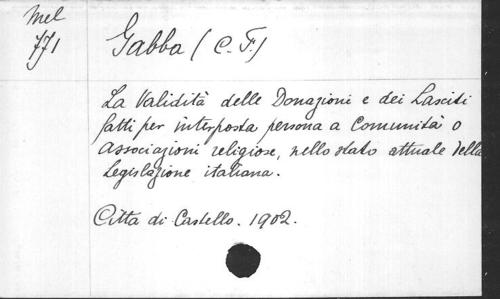 Mel
771
Gabba (C. F.)
La Validità delle Donazioni e dei Lasciti
fatti per interposta persona a Comunità o
Associazioni religiose, nello stato attuale della
Legislazione italiana.
Citta di Castello. 1902.